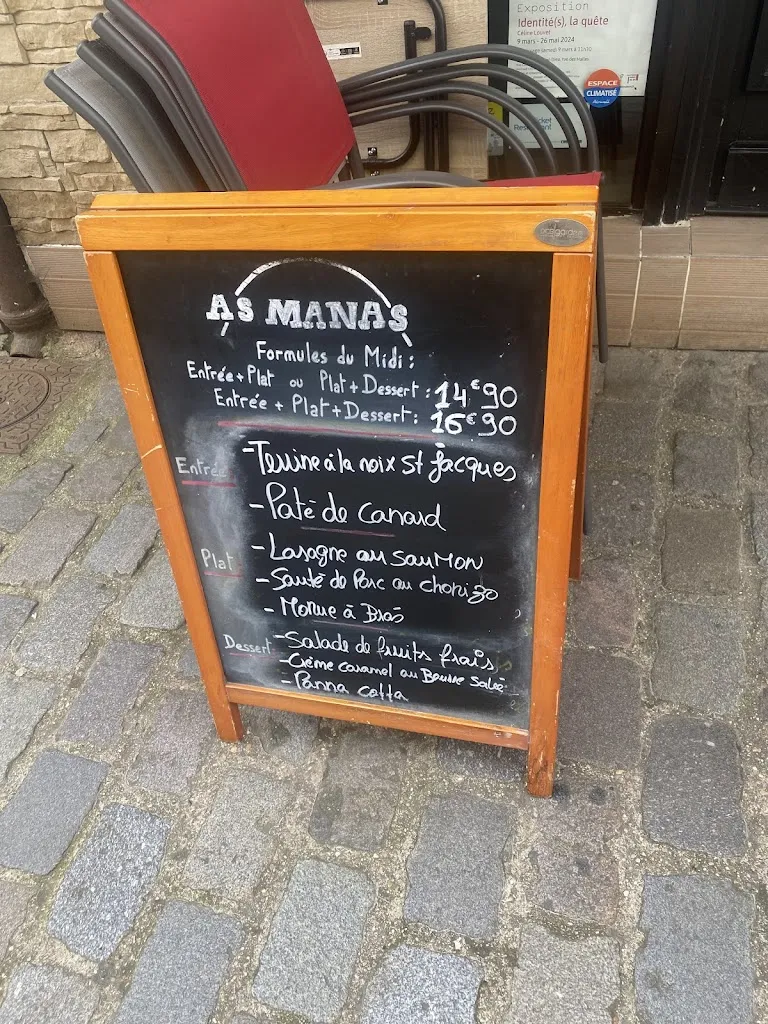 Exposition
Identité(s), la quête
Céline Louvet
9 mars - 26 mai 2024
ESPACE
CLIMATISÉ
AS MANAS
Formules du Midi :
Entrée + Plat ou Plat + Dessert : 14€90
Entrée + Plat + Dessert : 16€90
Entrée - Terrine à la noix St Jacques
- Paté de canard
Plat - Lasagne au saumon
- Sauté de Porc au chorizo
- Morue à Brás
Dessert - Salade de fruits frais
- Crème caramel au Beurre Salé
- Panna cotta